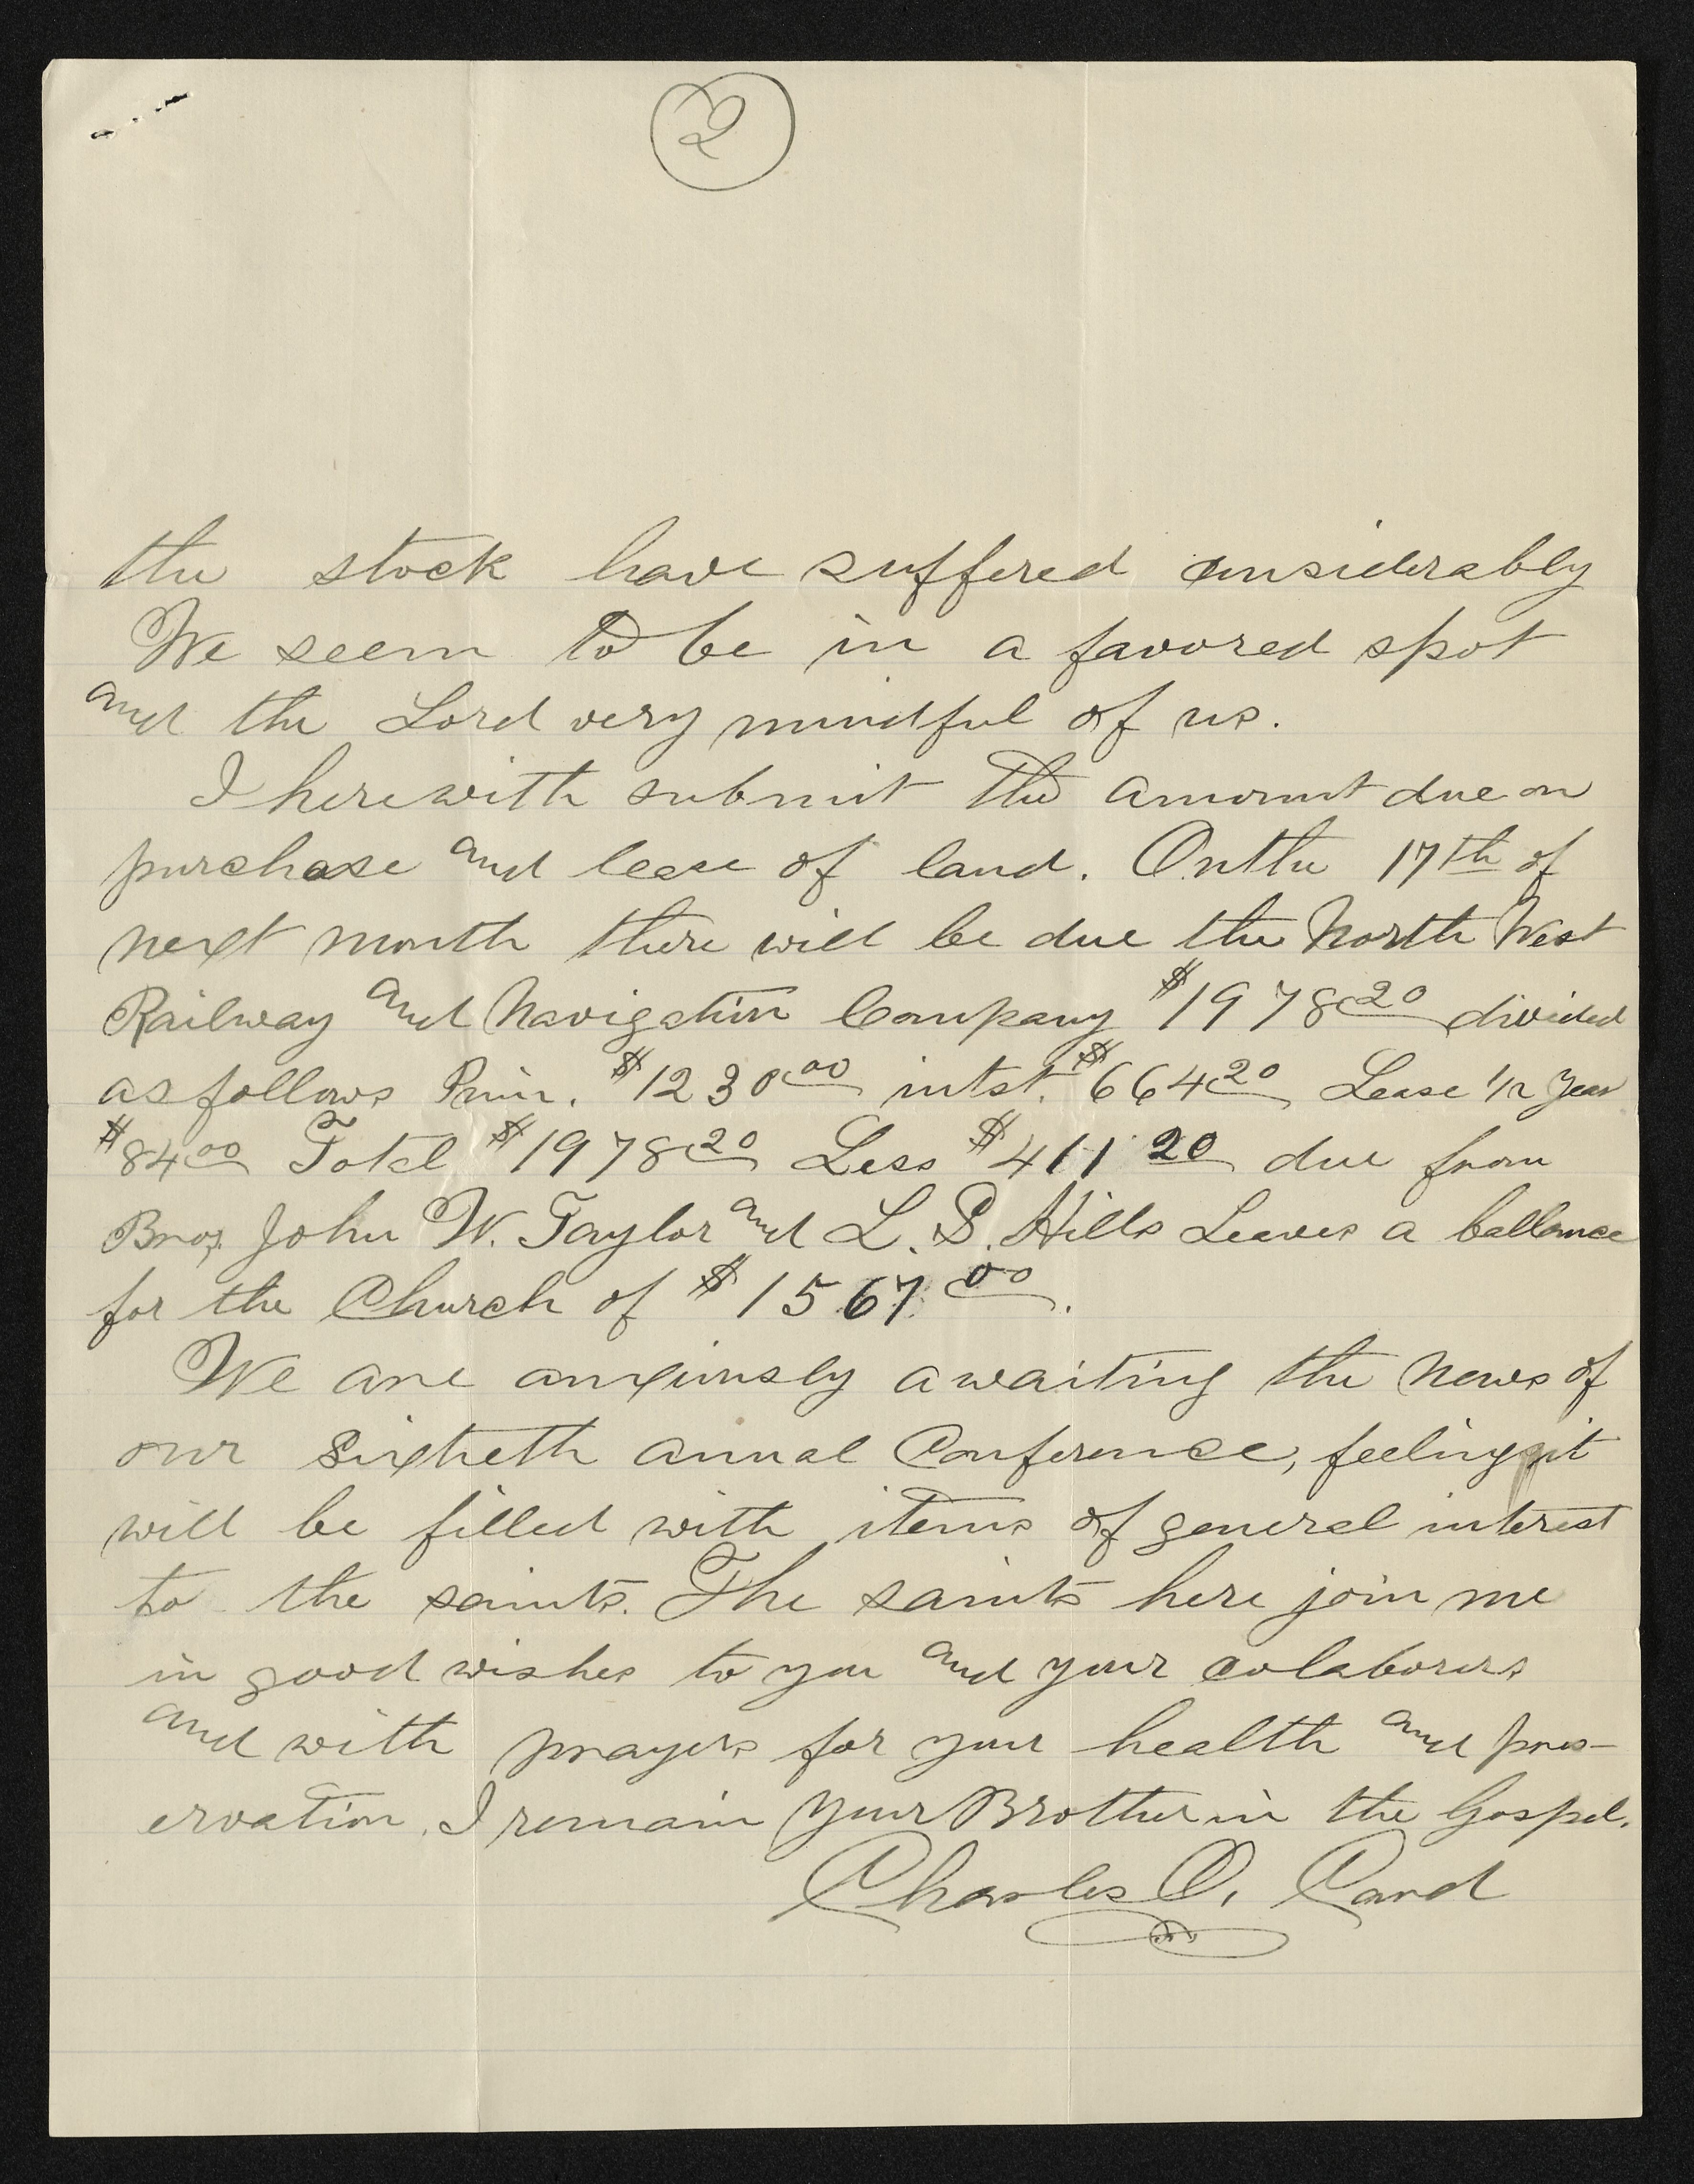 2
the stock have suffered considerably
We seem to be in a favored spot
and the Lord very mindful of us.
I herewith submit the amount due on
purchase and lease of land. On the 17th of
next month there will be due the North West
Railway and Navigation Company $1978 20 divided
as follows Prin. $1230 00 intst. $664 20 Lease 1/2 year
$84 00 Total $1978 20 Less $411 20 due from
Bros. John W. Taylor and L. S. Hills Leaves a ballance
for the Church of $1567 00.
We are anxiously awaiting the news of
our Sixtieth annual Conference, feeling it
will be filled with items of general interest
to the saints. The saints here join me
in good wishes to you and your colaborers
and with prayers for your health and pres-
ervation, I remain Your Brother in the Gospel.
Charles O. Card